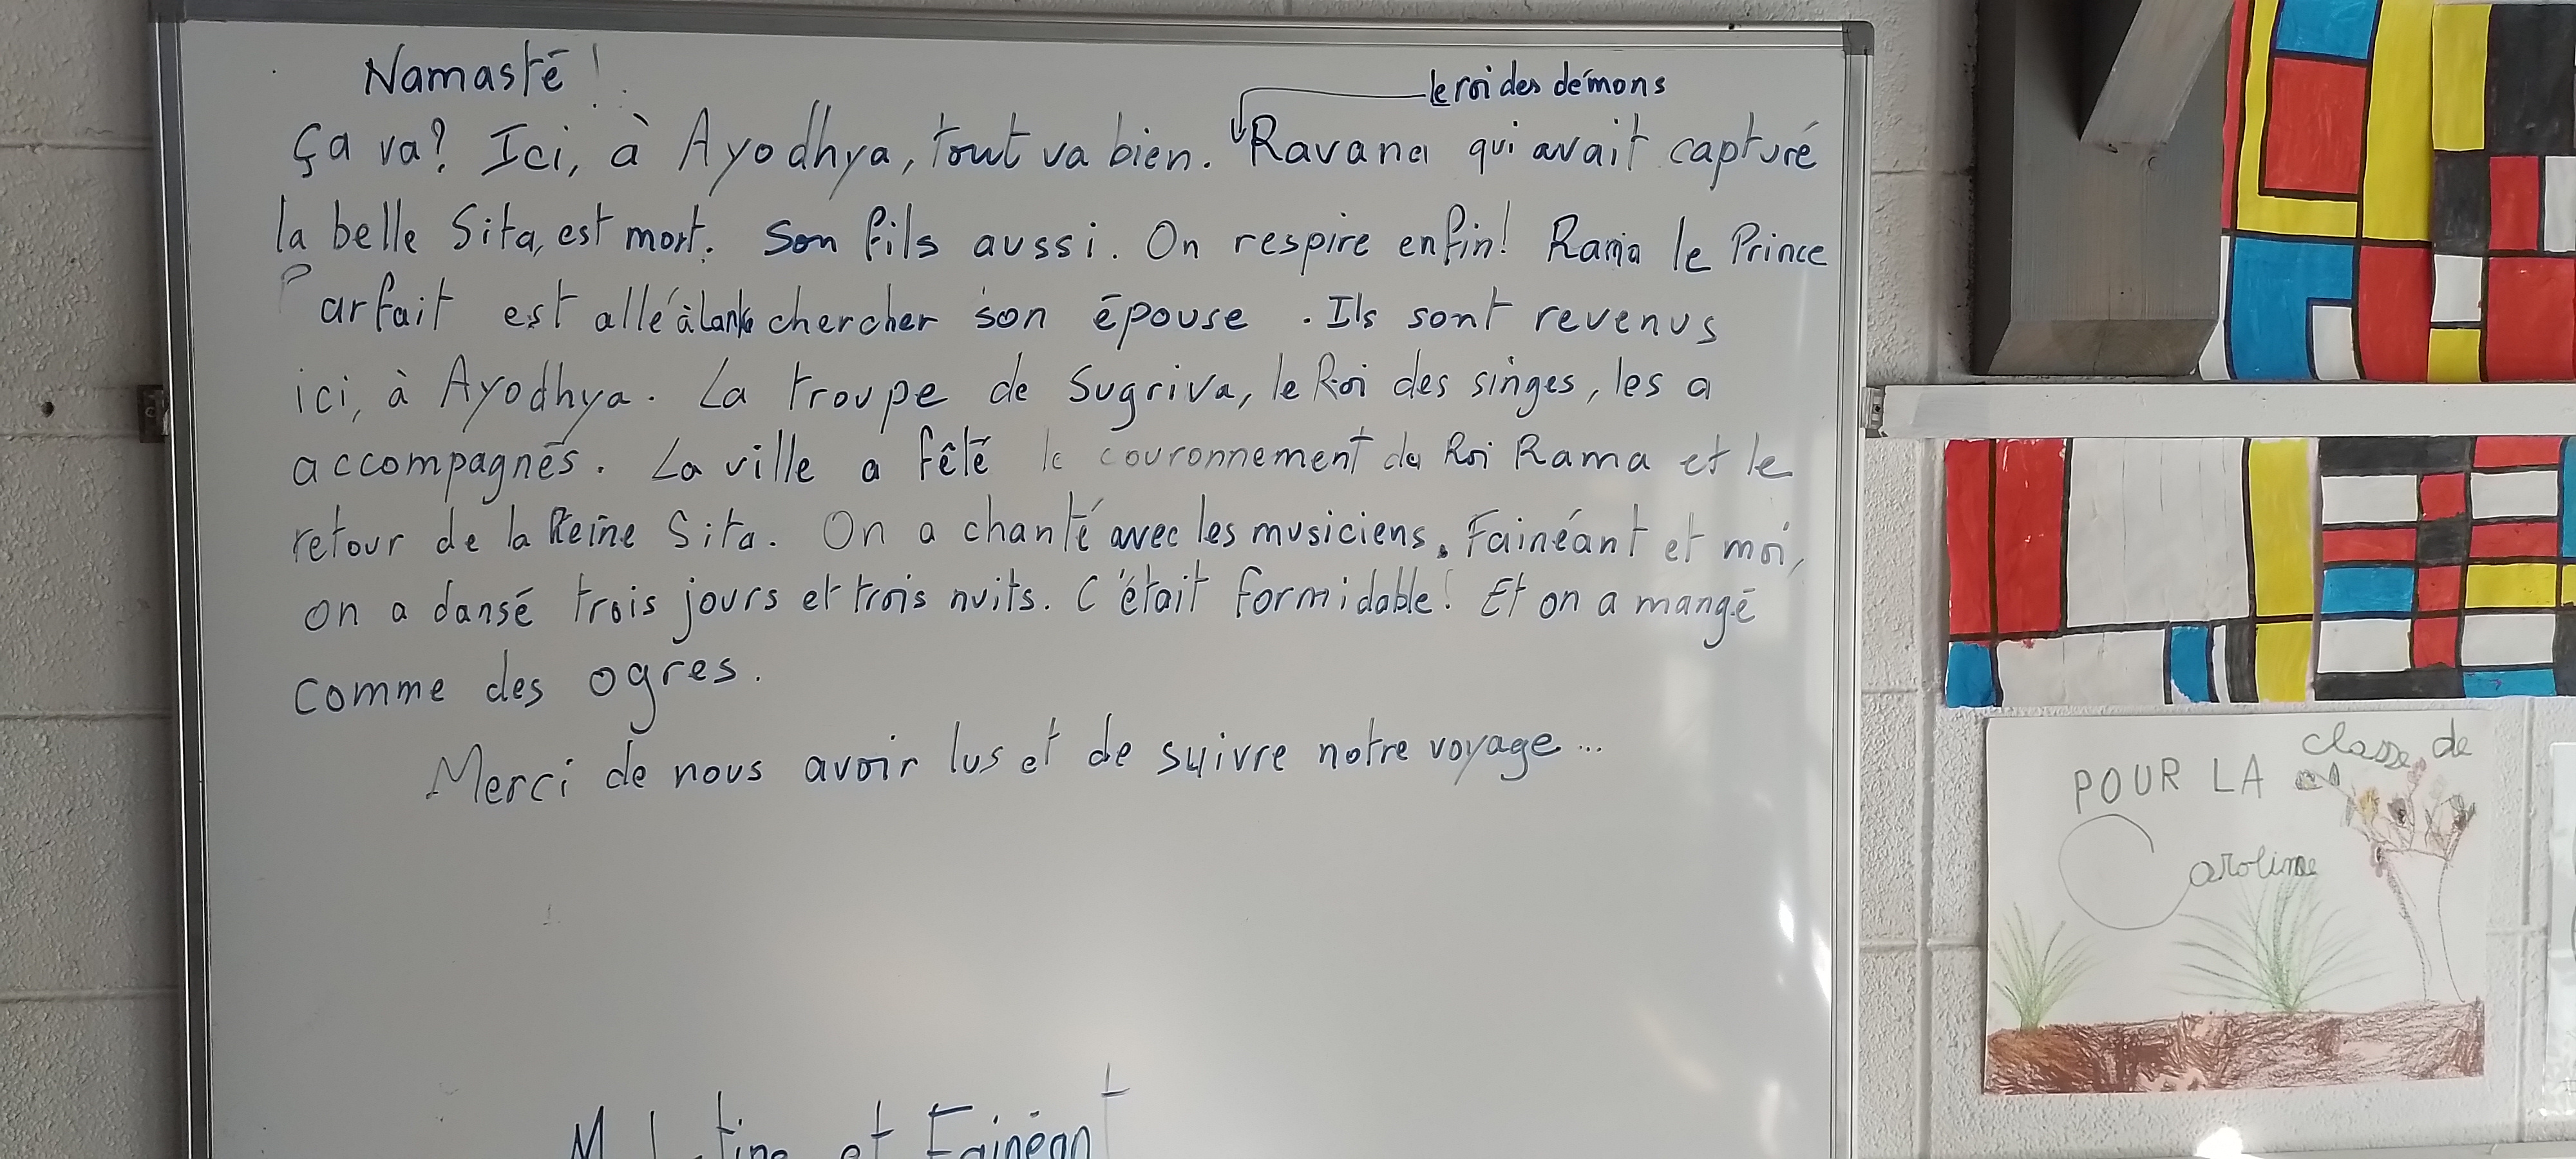 Namasté!
le roi des démons
Ça va? Ici, à Ayodhya, tout va bien. Ravana qui avait capturé
la belle Sita, est mort. Son fils aussi. On respire enfin! Rama le Prince
Parfait est allé à Lanka chercher son épouse. Ils sont revenus
ici, à Ayodhya. La troupe de Sugriva, le Roi des singes, les a
accompagnés. La ville a fêté le couronnement du Roi Rama et le
retour de la Reine Sita. On a chanté avec les musiciens. Fainéant et moi,
on a dansé trois jours et trois nuits. C'était formidable! Et on a mangé
comme des ogres.
Merci de nous avoir lus et de suivre notre voyage...
et Fainéant
POUR LA classe de
Caroline